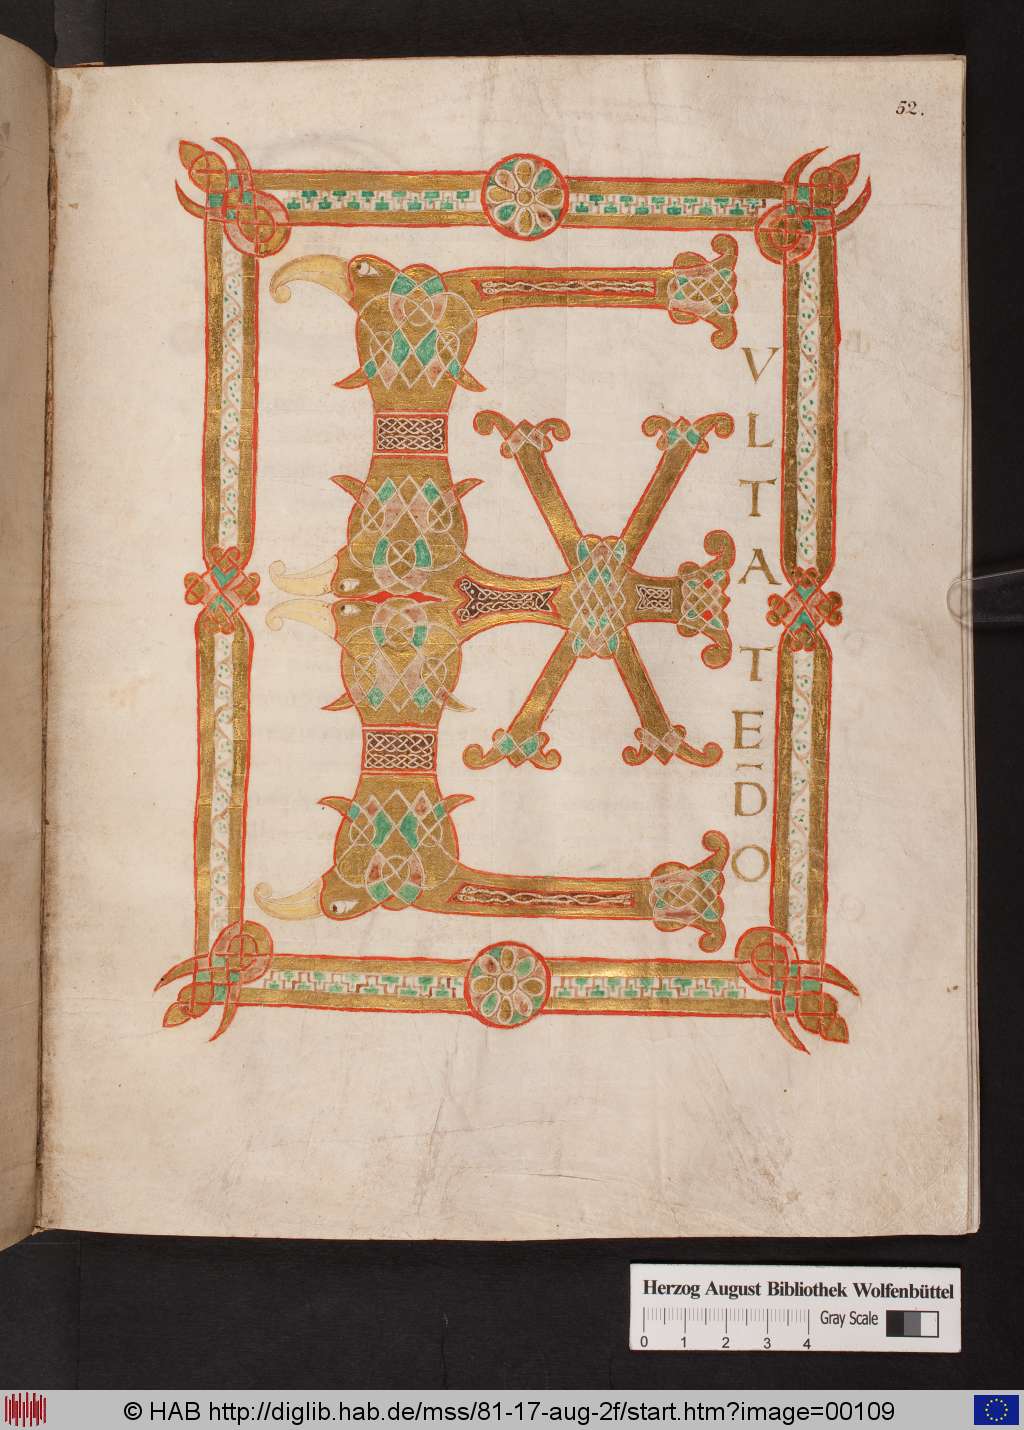 52.
EX
VLTATE D̄O
Herzog August Bibliothek Wolfenbüttel
Gray Scale
0 1 2 3 4
© HAB http://diglib.hab.de/mss/81-17-aug-2f/start.htm?image=00109